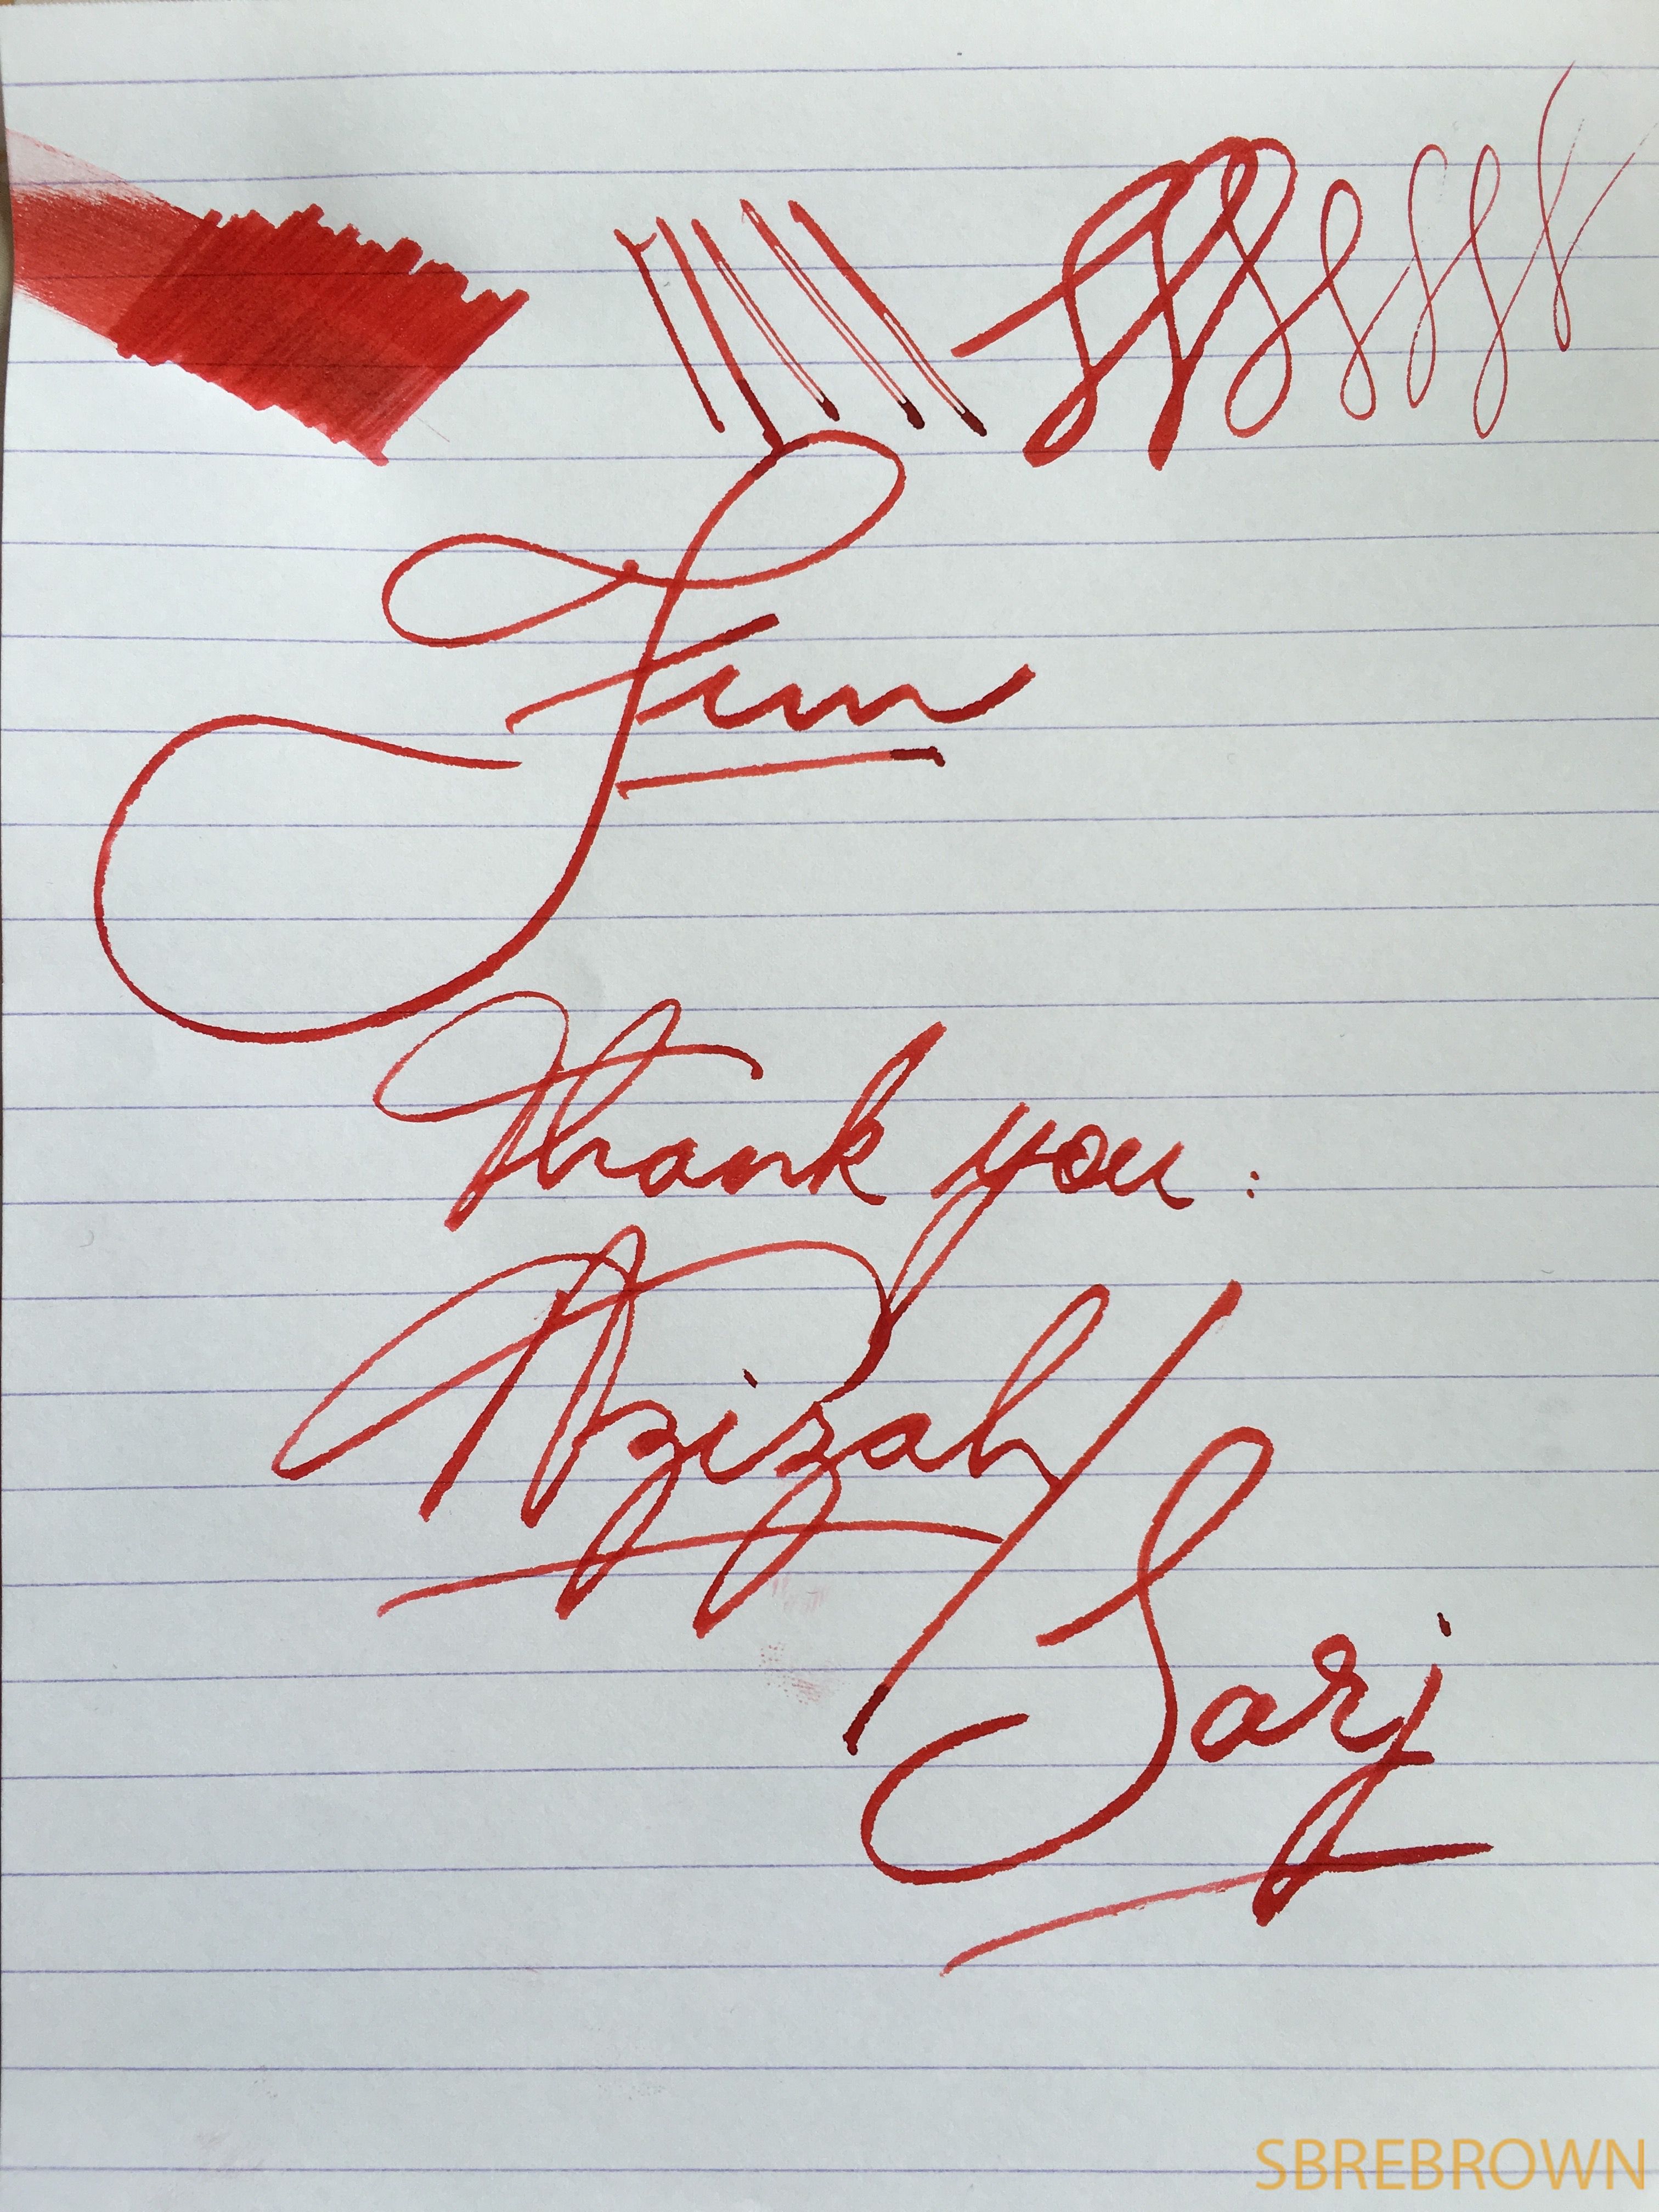 Fim
Thank you:
Azizah/
Sarj
SBREBROWN